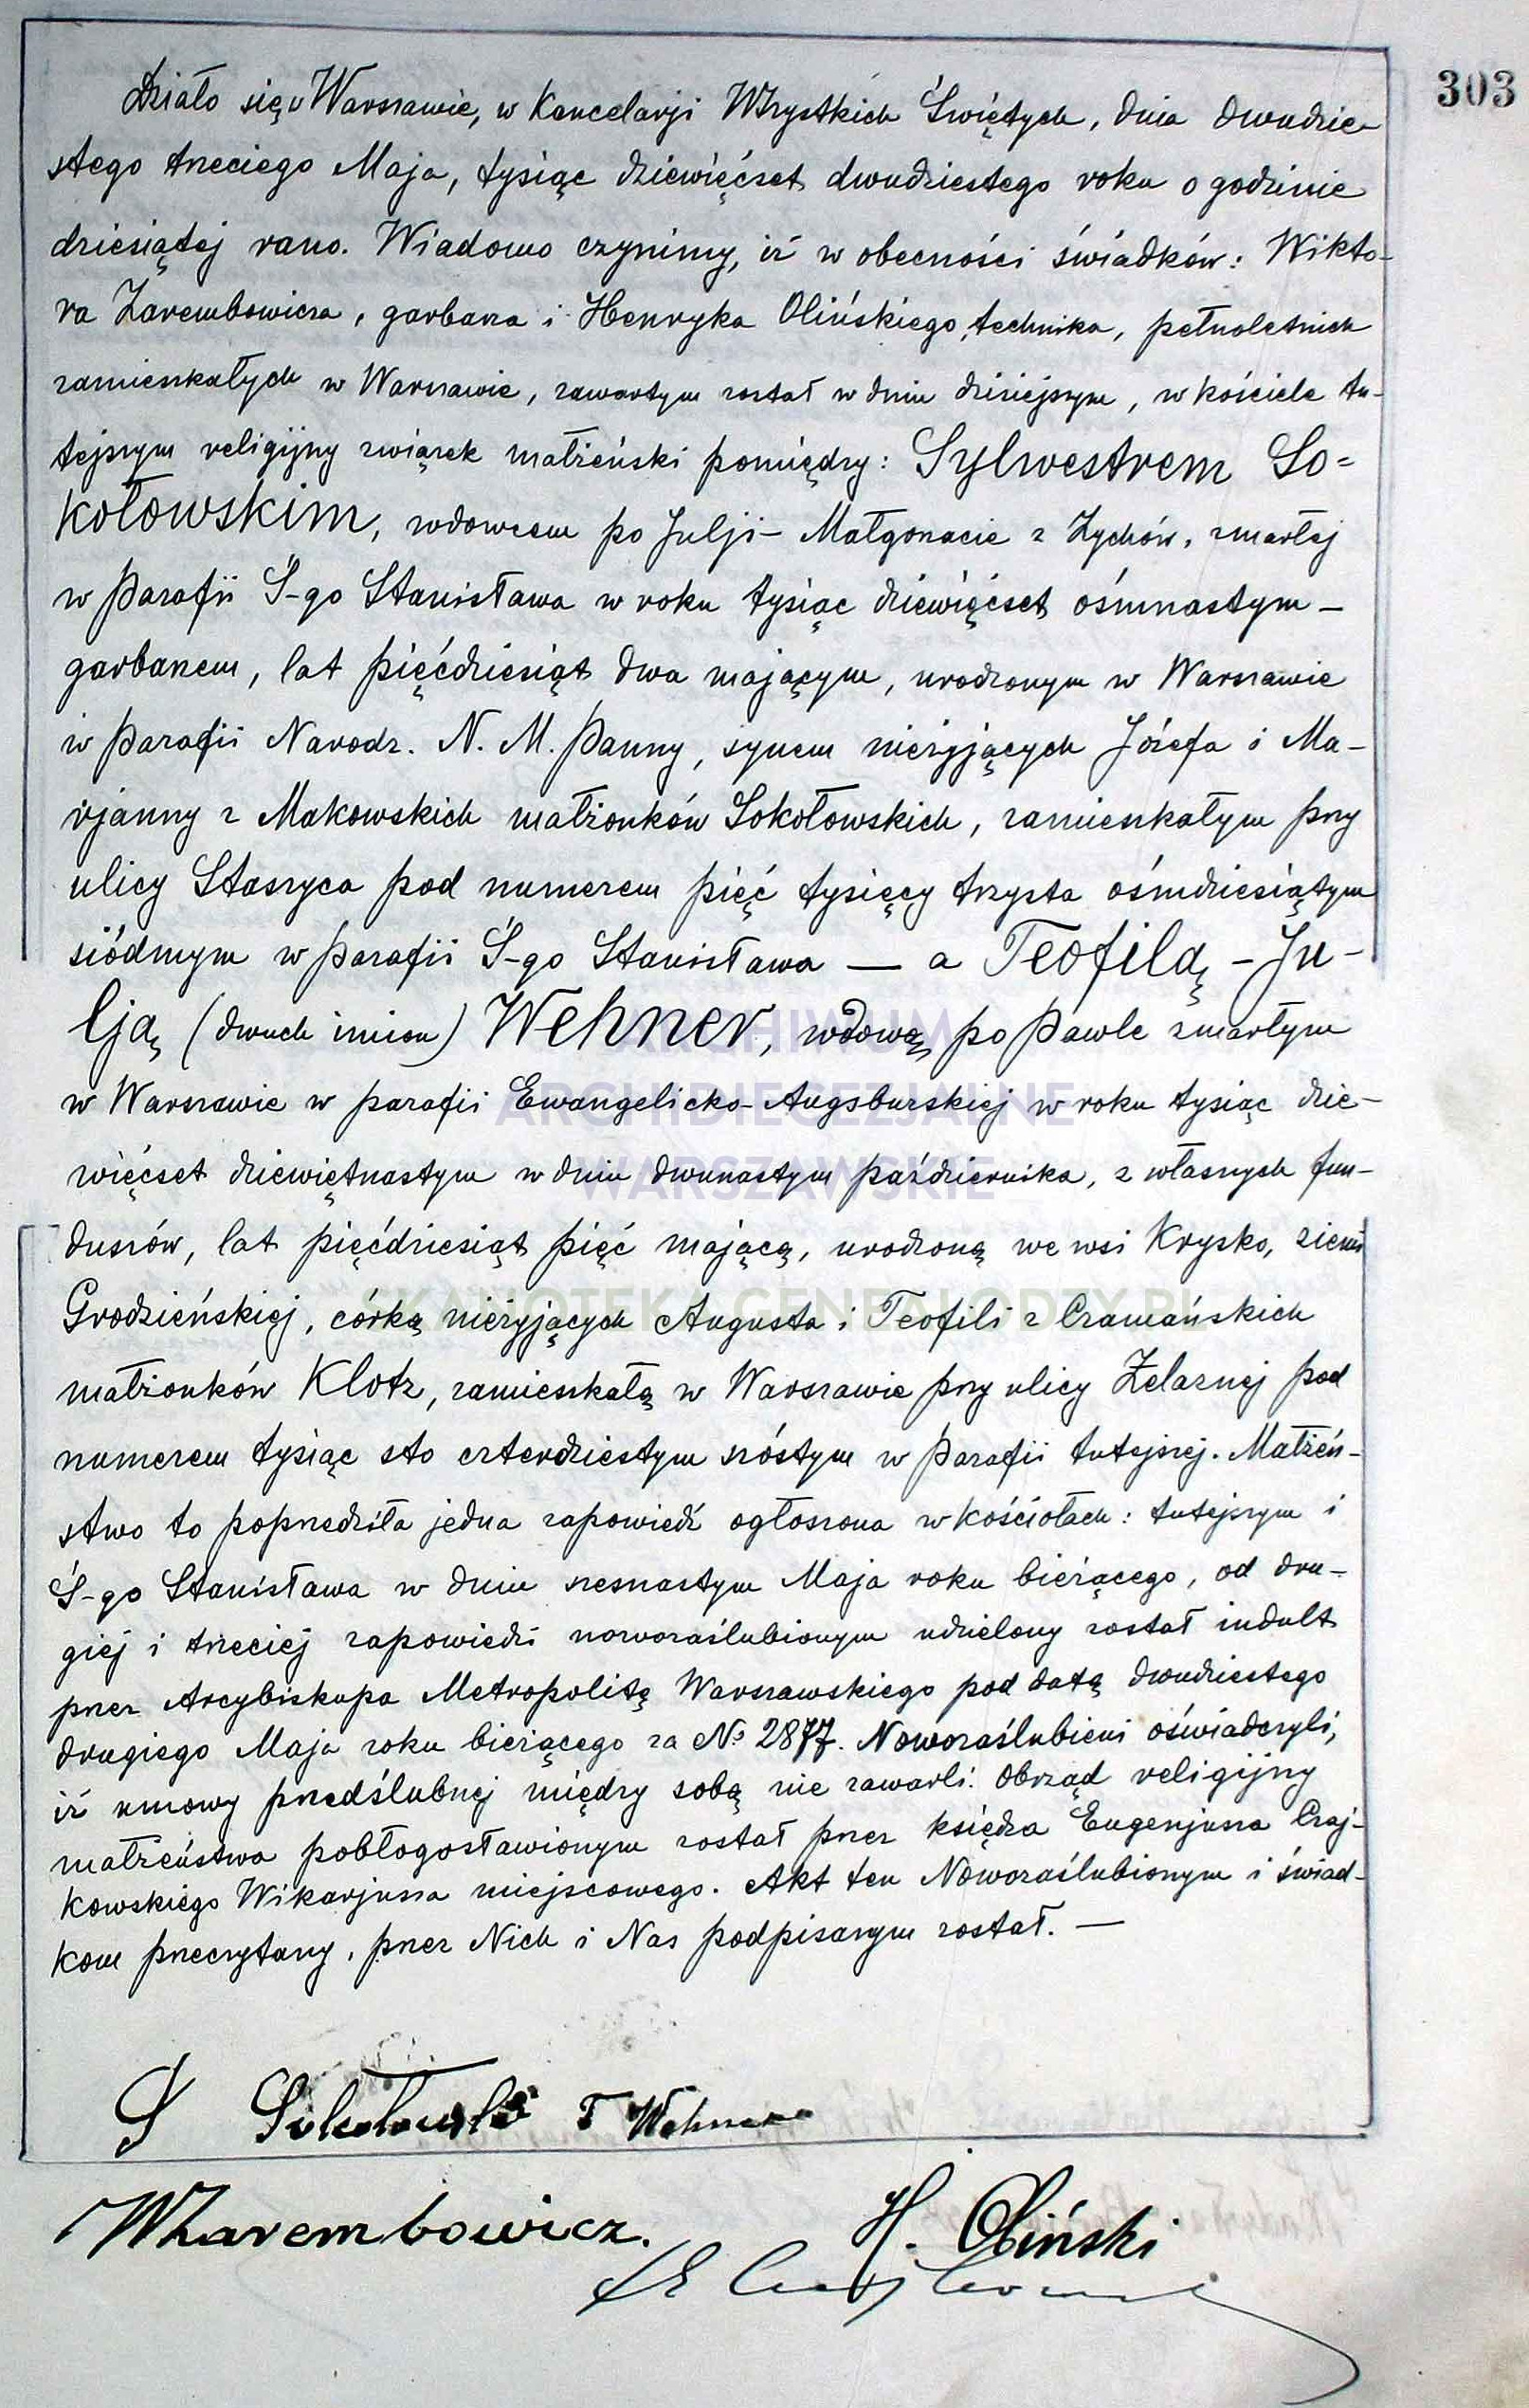 303
Działo się w Warszawie, w Kancelaryi Wszystkich Świętych, dnia dwudzie-
stego trzeciego Maja, tysiąc dziewięćset dwudziestego roku o godzinie
dziesiątej rano. Wiadomo czynimy, iż w obecności świadków: Wikto-
ra Zarembowicza, garbarza i Henryka Olińskiego, technika, pełnoletnich
zamieszkałych w Warszawie, zawartym został w dniu dzisiejszym, w kościele tu-
tejszym religijny związek małżeński pomiędzy: Sylwestrem So=
kołowskim, wdowcem po Julji-Małgorzacie z Zychów, zmarłej
w Parafii Ś-go Stanisława w roku tysiąc dziewięćset ośmnastym –
garbarzem, lat pięćdziesiąt dwa mającym, urodzonym w Warszawie
w Parafii Narodz. N. M. Panny, synem nieżyjących Józefa i Ma-
rjanny z Makowskich małżonków Sokołowskich, zamieszkałym przy
ulicy Staszyca pod numerem pięć tysięcy trzysta ośmdziesiątym
siódmym w Parafii Ś-go Stanisława — a Teofilą-Ju-
lją (dwuch imion) Wehner, wdową po Pawle zmarłym
w Warszawie w parafii Ewangelicko-Augsburskiej w roku tysiąc dzie-
więćset dziewiętnastym w dniu dwunastym października, z własnych fun-
duszów, lat pięćdziesiąt pięć mającą, urodzoną we wsi Krysko, ziemi
Grodzieńskiej, córką nieżyjących Augusta i Teofili z Czamańskich
małżonków Klotz, zamieszkałą w Warszawie przy ulicy Żelaznej pod
numerem tysiąc sto czterdziestym szóstym w Parafii tutejszej. Małżeń-
stwo to poprzedziła jedna zapowiedź ogłoszona w kościołach: tutejszym i
Ś-go Stanisława w dniu szesnastym Maja roku bieżącego, od dru-
giej i trzeciej zapowiedzi nowozaślubionym udzielony został indult
przez Arcybiskupa Metropolitę Warszawskiego pod datą dwudziestego
drugiego Maja roku bieżącego za № 2877. Nowozaślubieni oświadczyli,
iż umowy przedślubnej między sobą nie zawarli. Obrząd religijny
małżeństwa pobłogosławionym został przez księdza Eugenjusza Czaj-
kowskiego Wikarjusza miejscowego. Akt ten Nowozaślubionym i świad-
kom przeczytany, przez Nich i Nas podpisanym został. —
S Sokołowski T Wehner
WZarembowicz. H. Oliński
ARCHIWUM
ARCHIDIECEZJALNE
WARSZAWSKIE
SKANOTEKA.GENEALODZY.PL